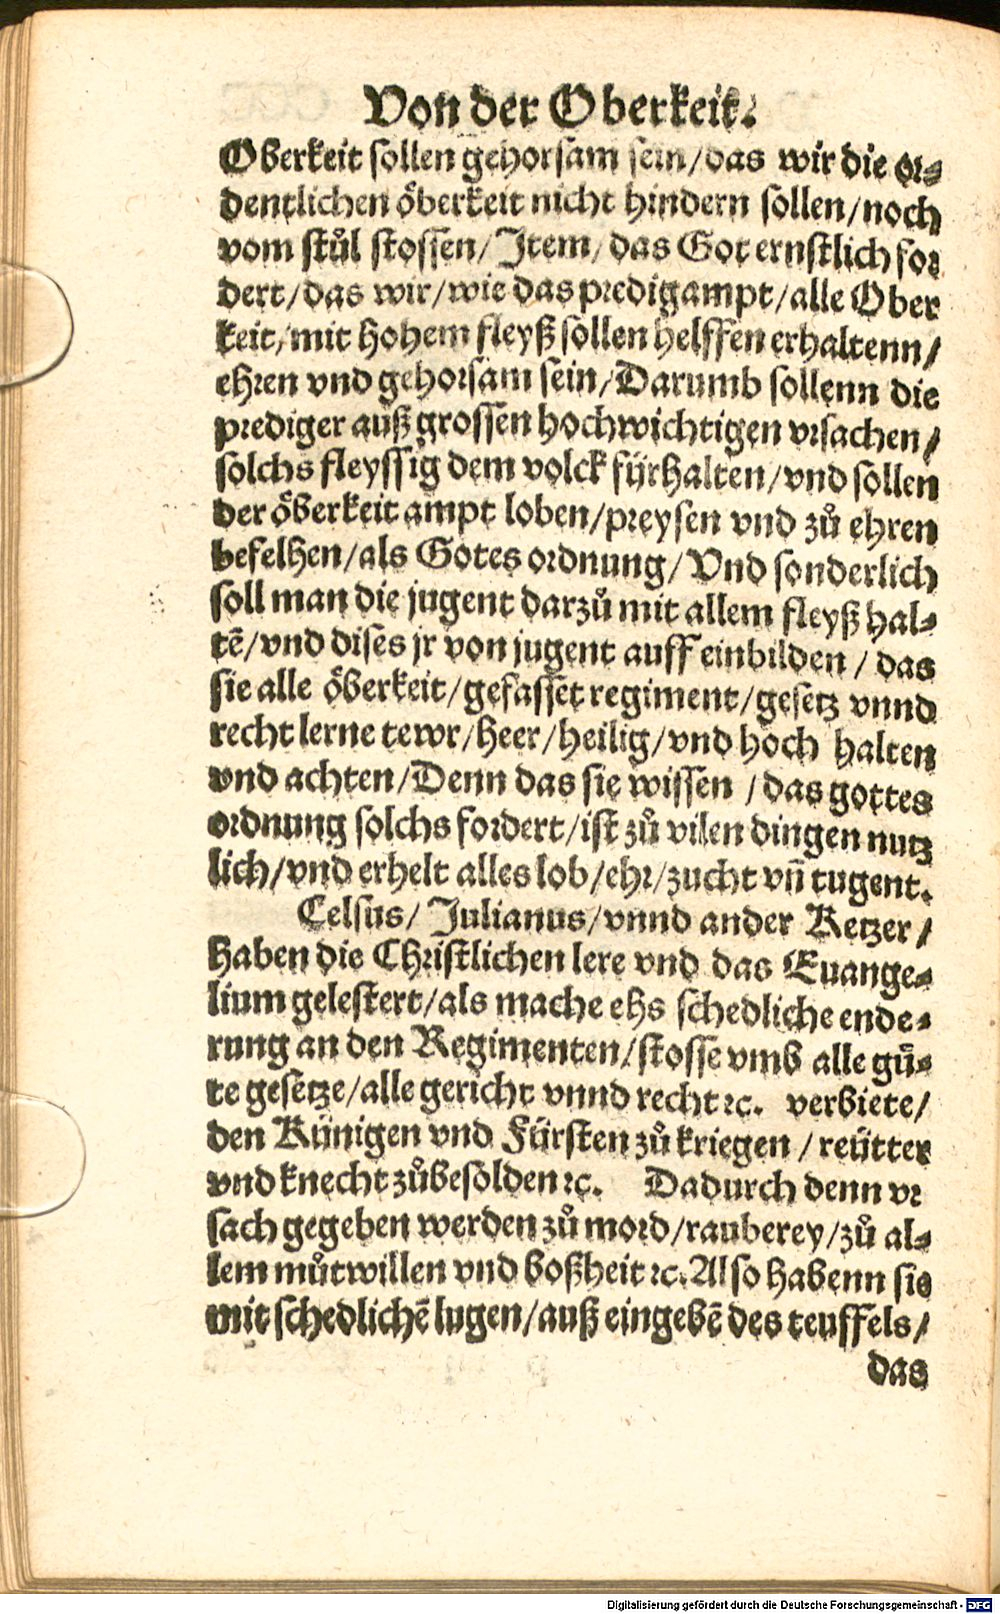 Von der Oberkeit.
Oberkeit sollen gehorsam sein/das wir die or-
dentlichen öberkeit nicht hindern sollen/noch
vom stůl stossen/Item/das Got ernstlich for
dert/das wir/wie das predigampt/alle Ober
keit/mit hohem fleyß sollen helffen erhaltenn/
ehren vnd gehorsam sein/Darumb sollenn die
prediger auß grossen hochwichtigen vrsachen/
solchs fleyssig dem volck fürhalten/vnd sollen
der öberkeit ampt loben/preysen vnd zů ehren
befelhen/als Gotes ordnung/Vnd sonderlich
soll man die jugent darzů mit allem fleyß hal-
tẽ/vnd dises jr von jugent auff einbilden/das
sie alle öberkeit/gefasset regiment/gesetz vnnd
recht lerne tewr/heer/heilig/vnd hoch halten
vnd achten/Denn das sie wissen/das gottes
ordnung solchs fordert/ist zů vilen dingen nutz
lich/vnd erhelt alles lob/ehr/zucht vñ tugent.
Celsus/Julianus/vnnd ander Ketzer/
haben die Christlichen lere vnd das Euange-
lium gelestert/als mache ehs schedliche ende-
rung an den Regimenten/stosse vmb alle gů-
te gesetze/alle gericht vnnd recht ꝛc. verbiete/
den Künigen vnd Fürsten zů kriegen/reütter
vnd knecht zůbesolden ꝛc. Dadurch denn vr
sach gegeben werden zů mord/rauberey/zů al-
lem můtwillen vnd boßheit ꝛc. Also habenn sie
mit schedlichẽ lugen/auß eingebẽ des teuffels/
das
Digitalisierung gefördert durch die Deutsche Forschungsgemeinschaft - DFG